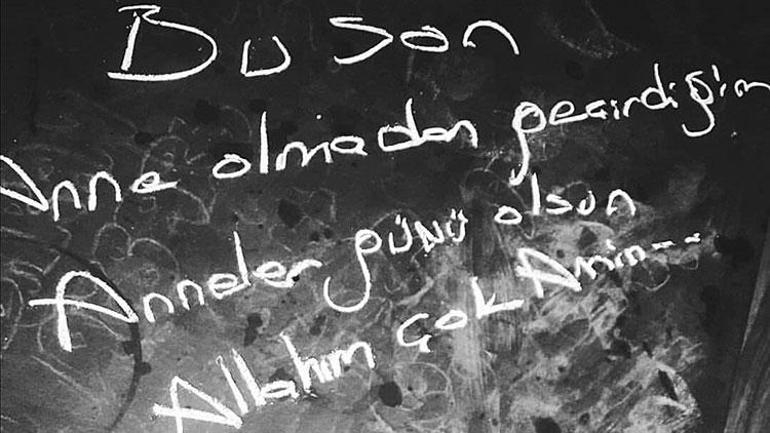 Bu son
Anne olmadan geçirdiğim
Anneler günü olsun
Allahım çok Amin---